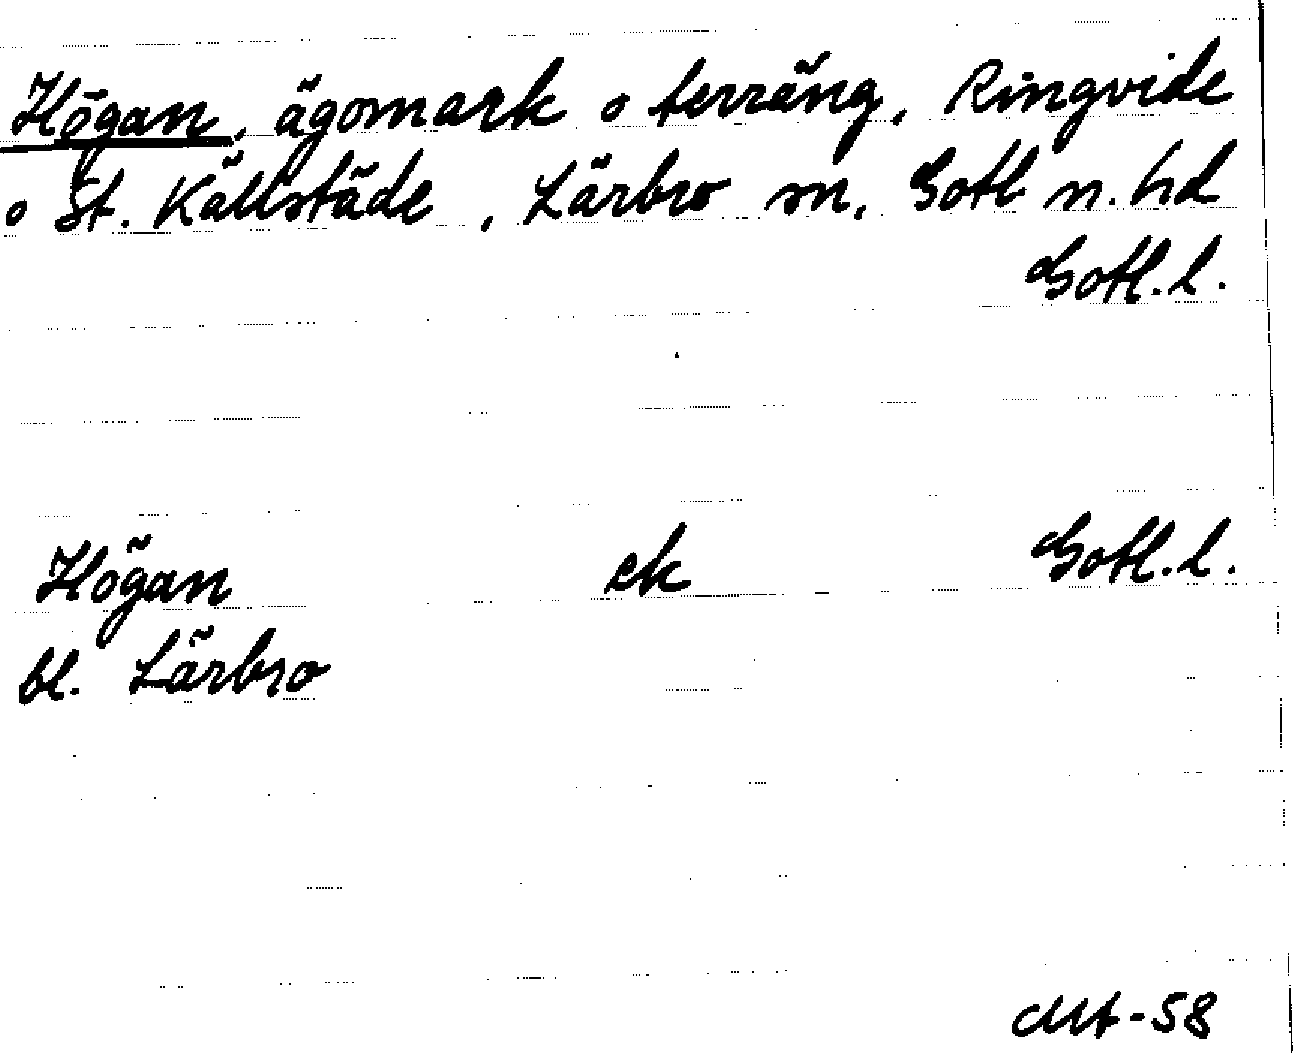 Högan, ägomark o terräng, Ringvide
o St. Källstäde, Lärbro sn, Gotl n. hd
Gotl. l.
Högan ek Gotl. l.
bl. Lärbro
-58